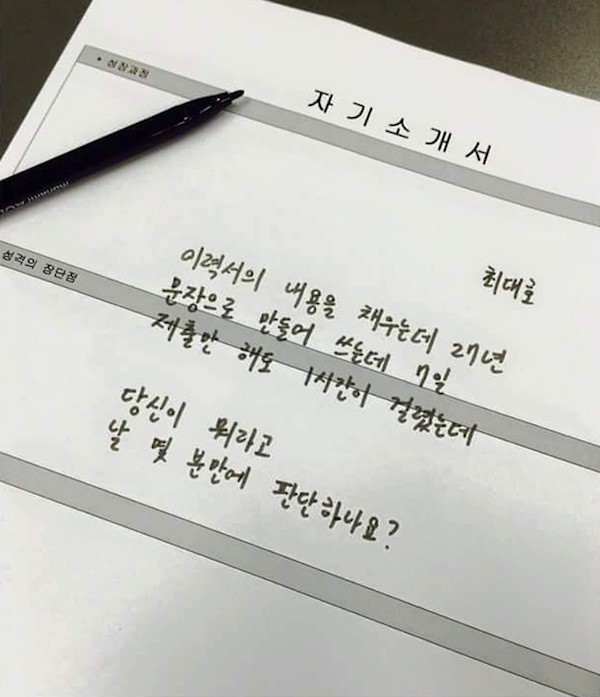 • 성장과정
자기소개서
최대호
성격의 장단점
이력서의 내용을 채우는데 27년
문장으로 만들어 쓰는데 7일
제출만 해도 1시간이 걸렸는데
당신이 뭐라고
날 몇 분만에 판단하나요?